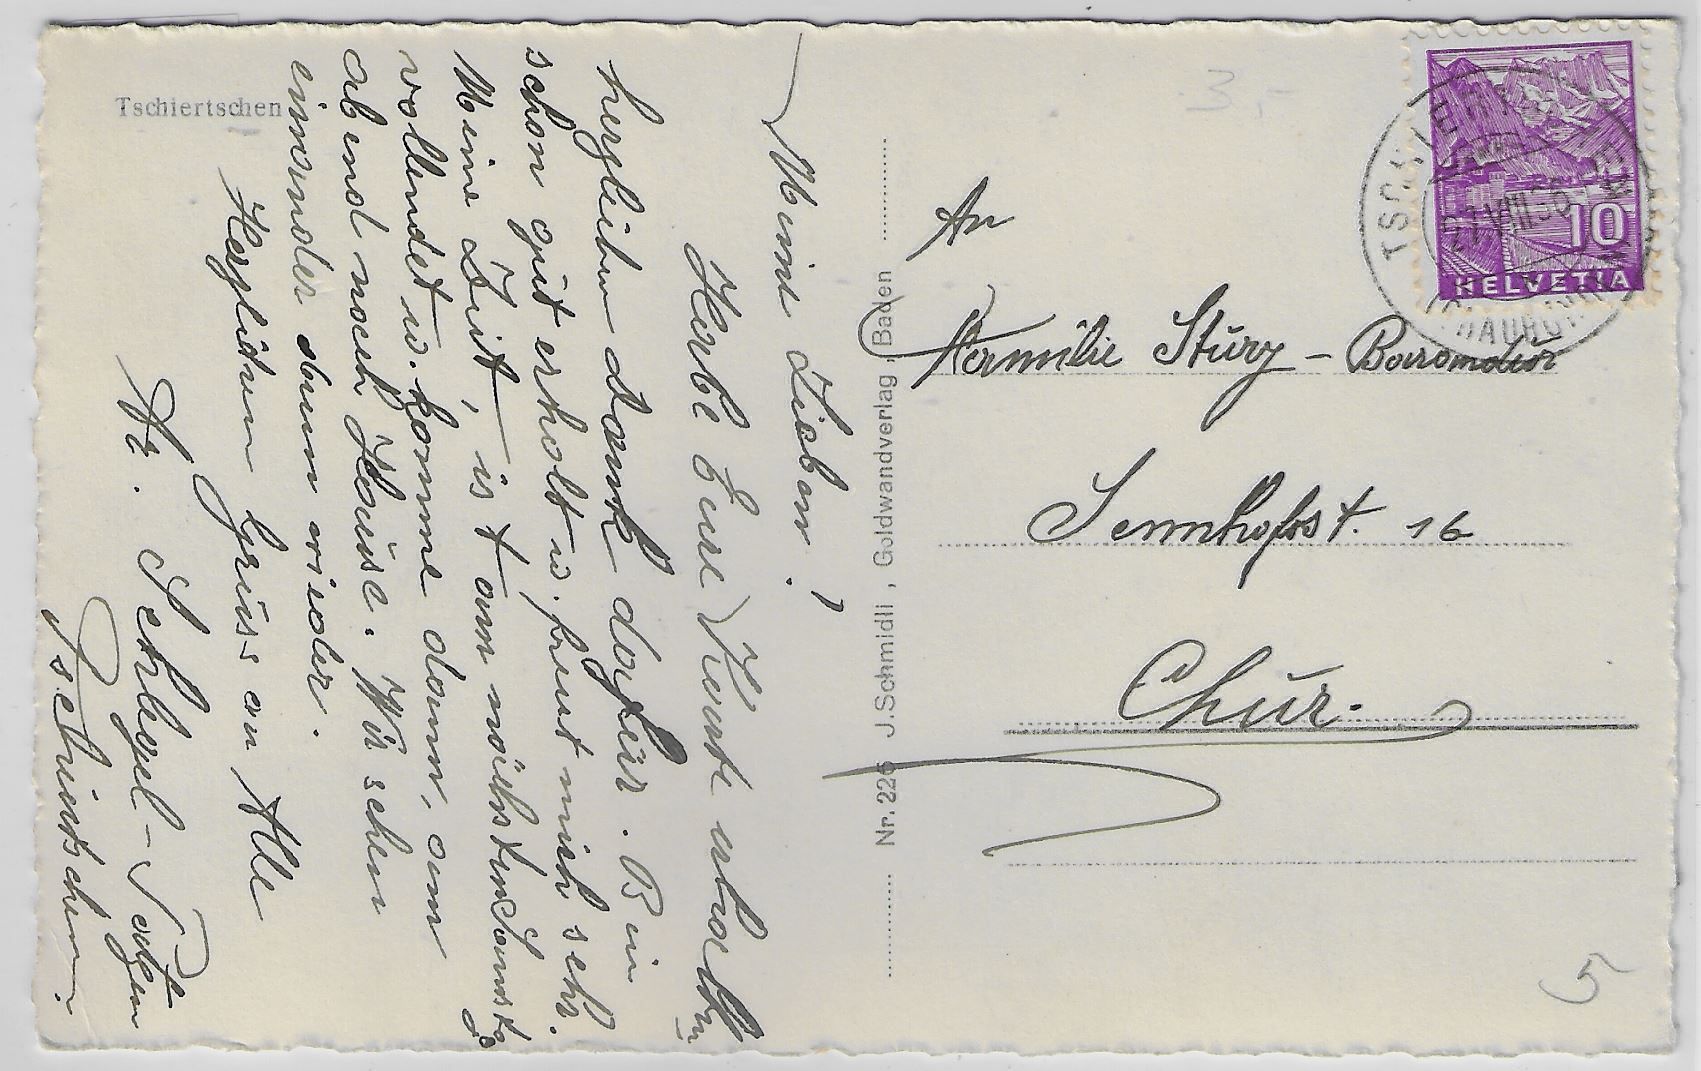 Tschiertschen
Meine Lieben!
Habe Eure Karte erhalten
herzlichen Dank dafür. Bin
schon gut erholt u. freut mich sehr.
Meine Zeit, ist am nächsten Samstag
vollendet u. komme dann, am
abend nach Hause. Wir sehen
einander dann wieder.
Herzlichen Gruss an Alle
A. Schlegel-
Tschiertschen.
Nr. 226 J. Schmidli, Goldwandverlag, Baden
An
Familie Sturz -
Sennhofst. 16
Chur.
10
HELVETIA
TSCHIERTSCHEN
VIII 36
5